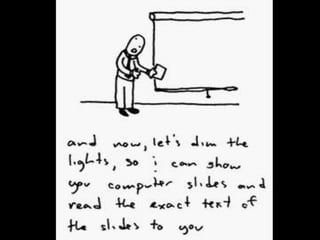 and now, let's dim the
lights, so i can show
you computer slides and
read the exact text of
the slides to you